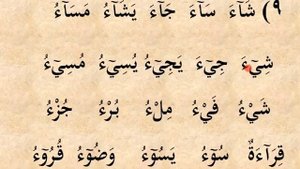 ٩) شَآءَ سَآءَ جَآءَ يَشَآءُ مَسَآءُ
شِيْٓءَ جِيْٓءَ يَجِيْٓءُ يُسِيْٓءُ مُسِيْٓءُ
شَيْءُ فَيْءُ مِلْءُ بُرْءُ جُزْءُ
قِرَآءَةٌ سُوْٓءُ يَسُوْٓءُ وَضُوْٓءُ قُرُوْٓءُ